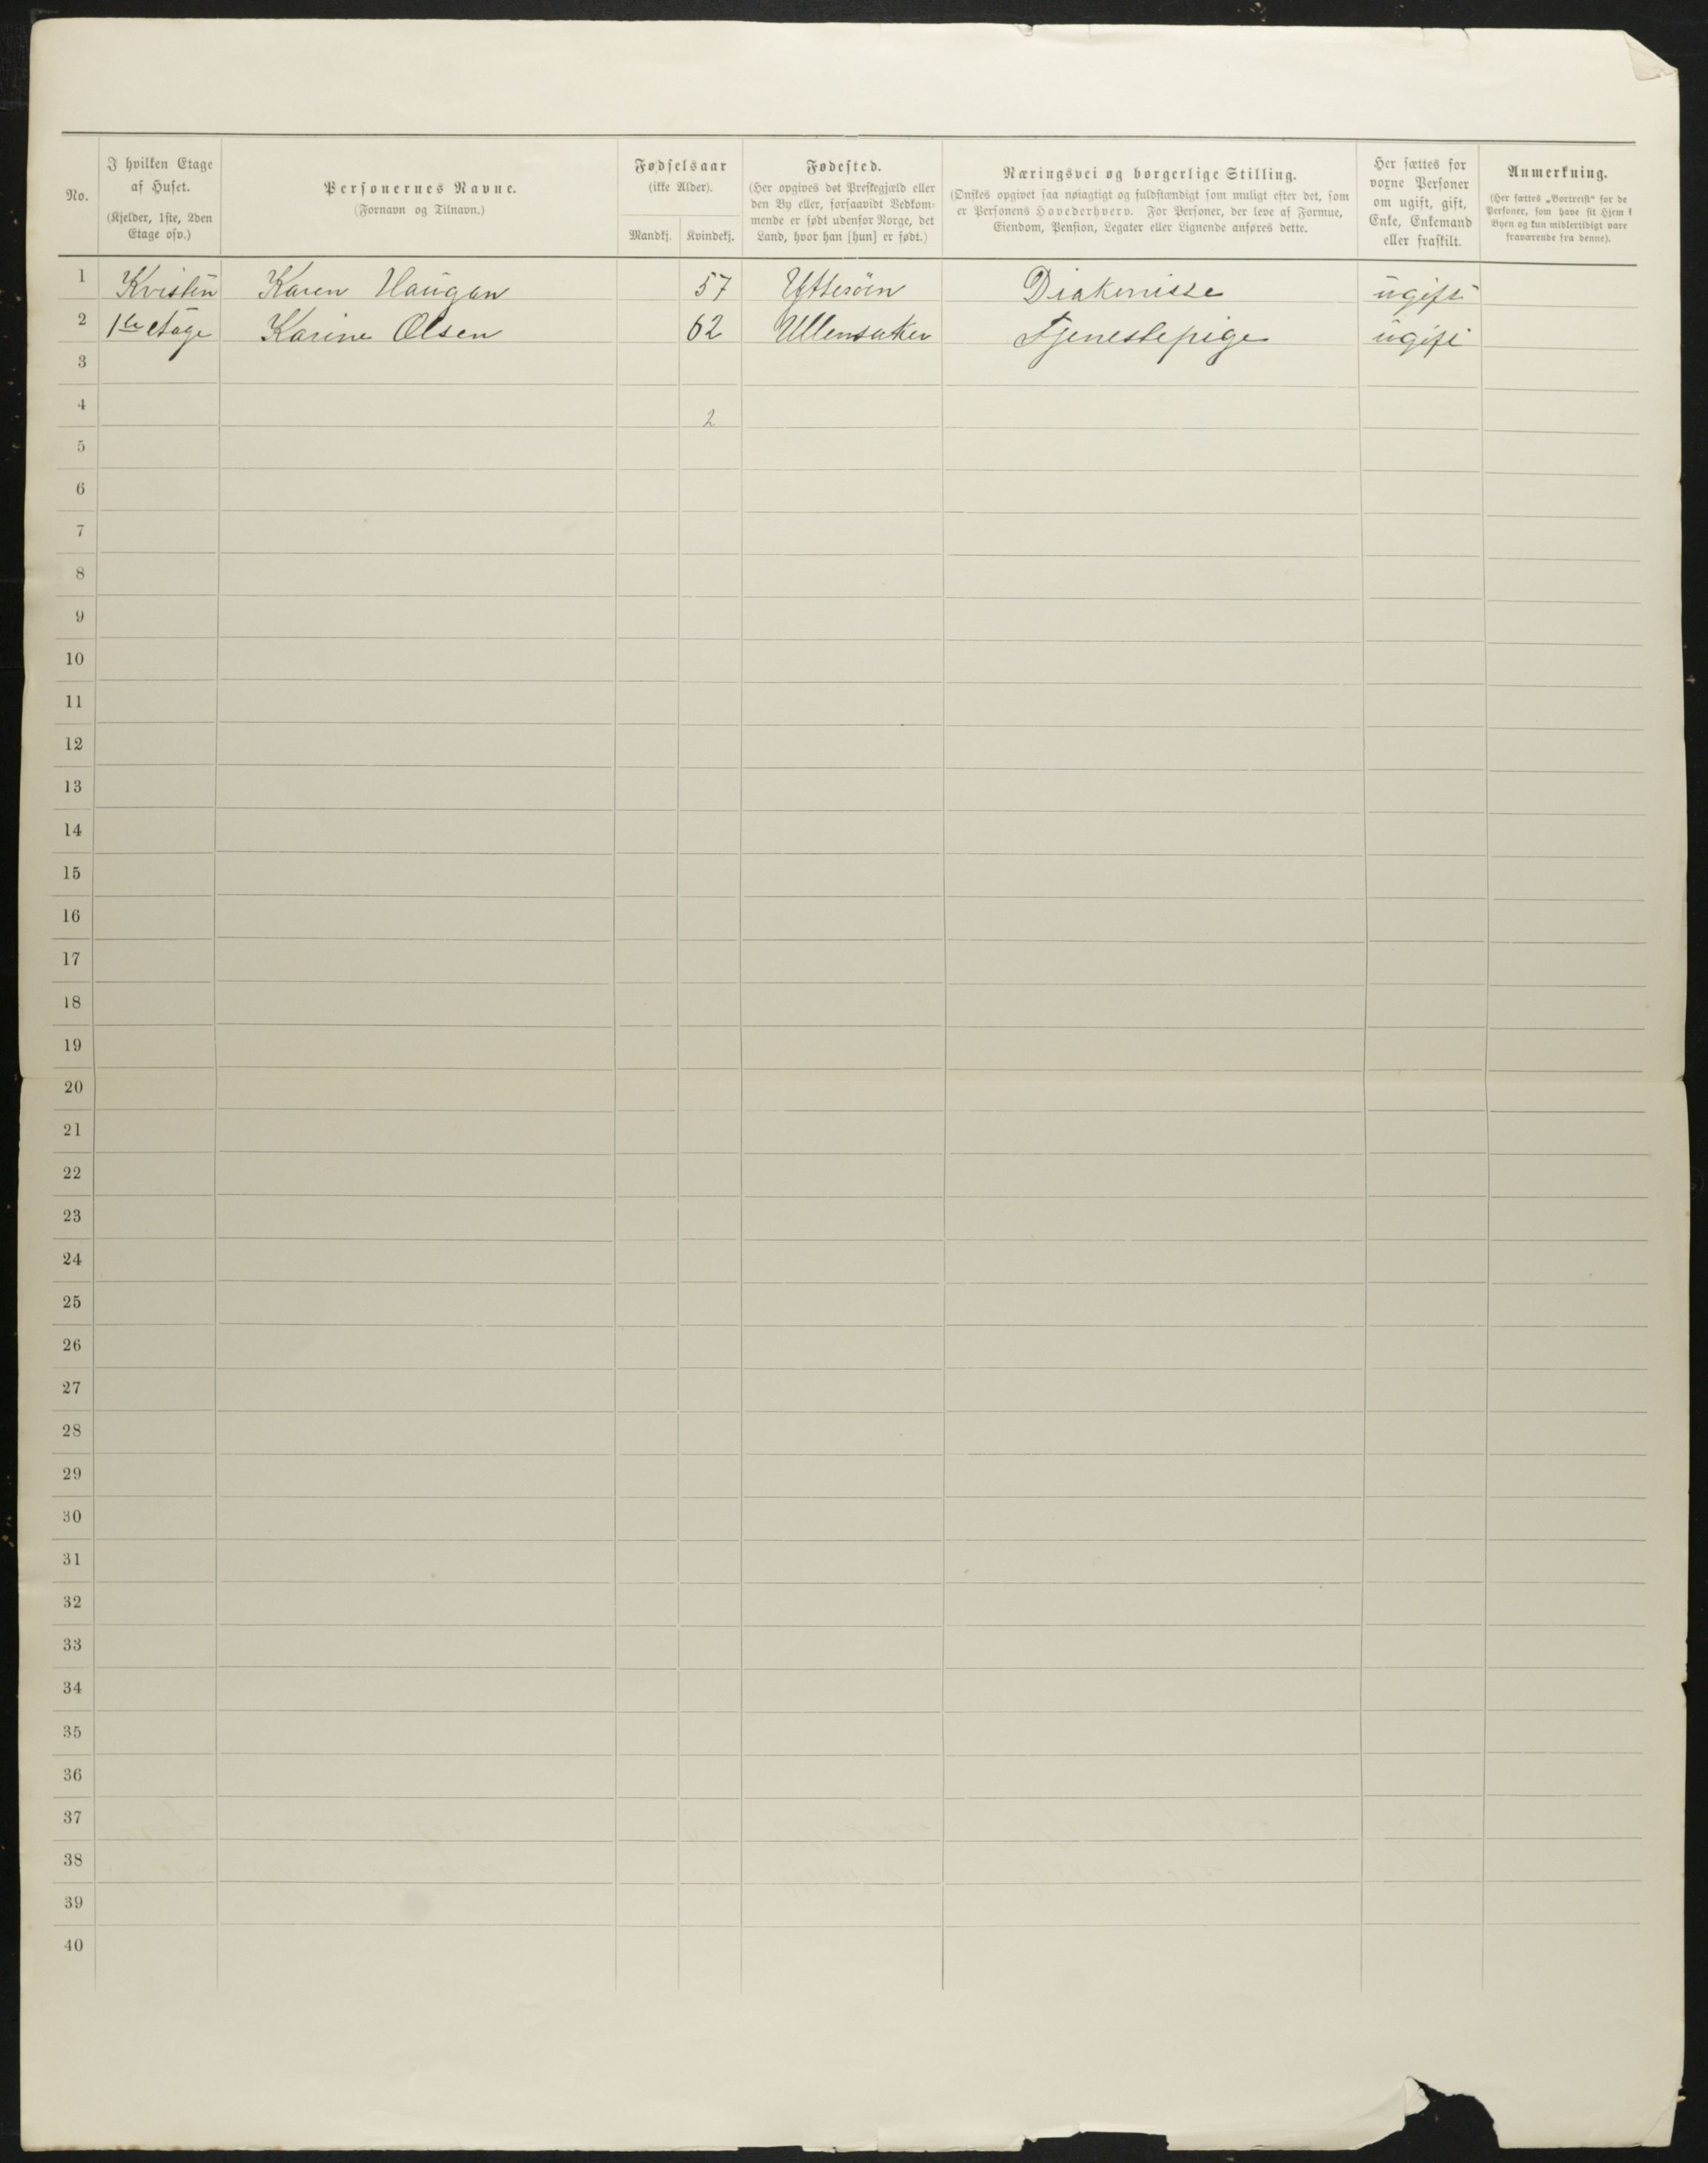 No.
I hvilken Etage
af Huset.
(Kjelder, 1ste, 2den
Etage osv.)
Personernes Navne.
(Fornavn og Tilnavn.)
Fødselsaar
(ikke Alder).
Mandkj.
Kvindekj.
Fødested.
(Her opgives det Prestegjæld eller
den By eller, forsaavidt Vedkom-
mende er født udenfor Norge, det
Land, hvor han [hun] er født.)
Næringsvei og borgerlige Stilling.
(Ønskes opgivet saa nøiagtigt og fuldstændigt som muligt efter det, som
er Personens Hovederhverv. For Personer, der leve af Formue,
Eiendom, Pension, Legater eller Lignende anføres dette.
Her sættes for
voxne Personer
om ugift, gift,
Enke, Enkemand
eller fraskilt.
Anmerkning.
(Her sættes „Bortreist“ for de
Personer, som have sit Hjem i
Byen og kun midlertidigt være
fraværende fra denne).
1 Kvisten Karen Haugan 57 Ytterøen Diakonisse ugift
2 1ste etage Karine Olsen 62 Ullensaker Tjenestepige ugift
3
4 2
5
6
7
8
9
10
11
12
13
14
15
16
17
18
19
20
21
22
23
24
25
26
27
28
29
30
31
32
33
34
35
36
37
38
39
40